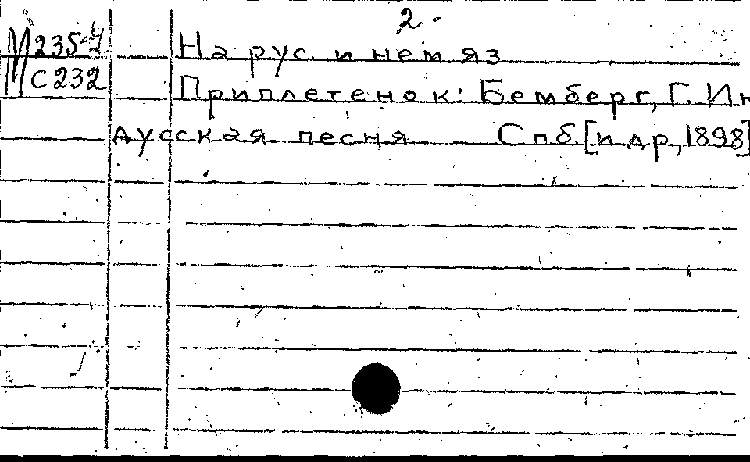 2.
М235-4 На рус. и нем яз
С232 Приплетено к: Бемберг, Г. Ин
дусская песня Спб. [и др., 1898]